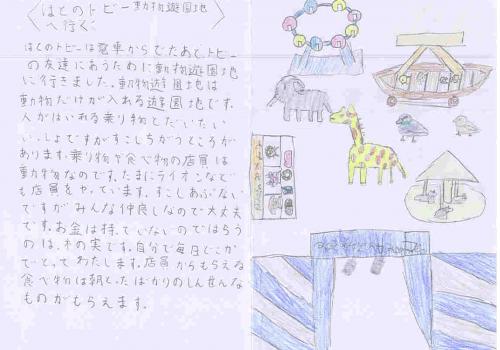 はとのトビー動物遊園地
へ行く
はとのトビーは電車からでたあと、トビー
の友達にあうために動物遊園地
に行きました。動物遊園地は
動物だけが入れる遊園地です。
人がはいれる乗り物とだいたい
いっしょですがすこしちがうところが
あります。乗り物や食べ物の店員は
動物なのです。たまにライオンなどで
も店員をやっています。すこしあぶない
ですがみんな仲良しなので大丈夫
です。お金は持っていないのではらう
のは、木の実です。自分で毎日どこか
でとってわたします。店員からもらえる
食べ物は朝とったばかりのしんせんな
ものがもらえます。